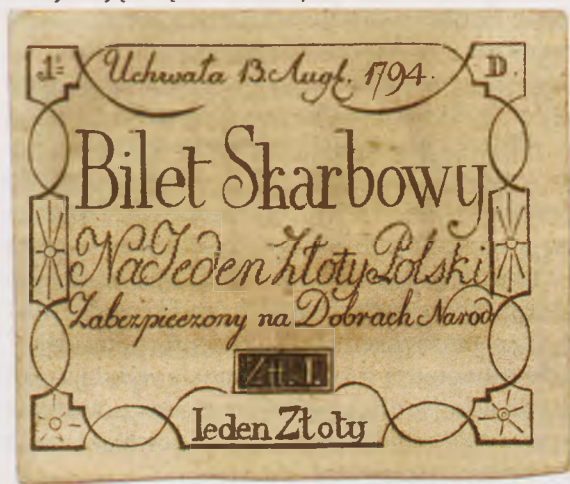 1= Uchwała 13. Augſ. 1794. D.
Bilet Skarbowy
Na Ieden Złoty Polski
Zabezpieczony na Dobrach Narod
Zł. 1.
Ieden Złoty